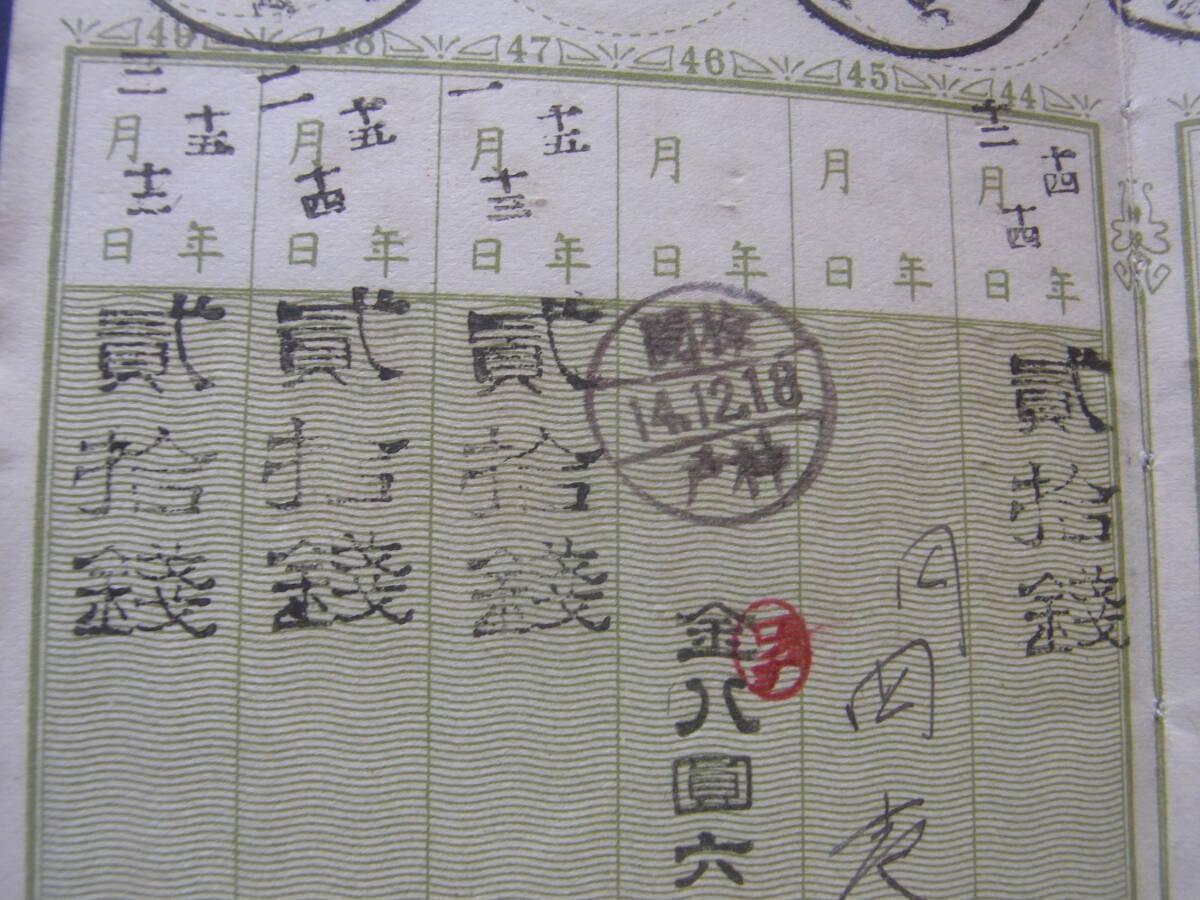 44
十四年
十二月
十四日
貳拾錢
45
年
月
日
46
年
月
日
檢閲
14.12.18
神戸
金八圓六
47
十五年
一月
十三日
貳拾錢
48
十五年
二月
十四日
貳拾錢
49
十五年
三月
日
貳拾錢